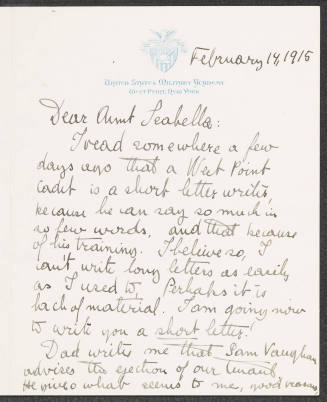 February 14, 1915
United States Military Academy
West Point, New York
Dear Aunt Isabella:
I read somewhere a few
days ago that a West Point
cadet is a short letter writer
because he can say so much in
so few words, and that because
of his training. I believe so, I
can't write long letters as easily
as I used to. Perhaps it is
lack of material. I am going now
to write you a short letter!
Dad writes me that Sam Vaughan
advises the ejection of our tenant.
He gives what seems to me, good reasons